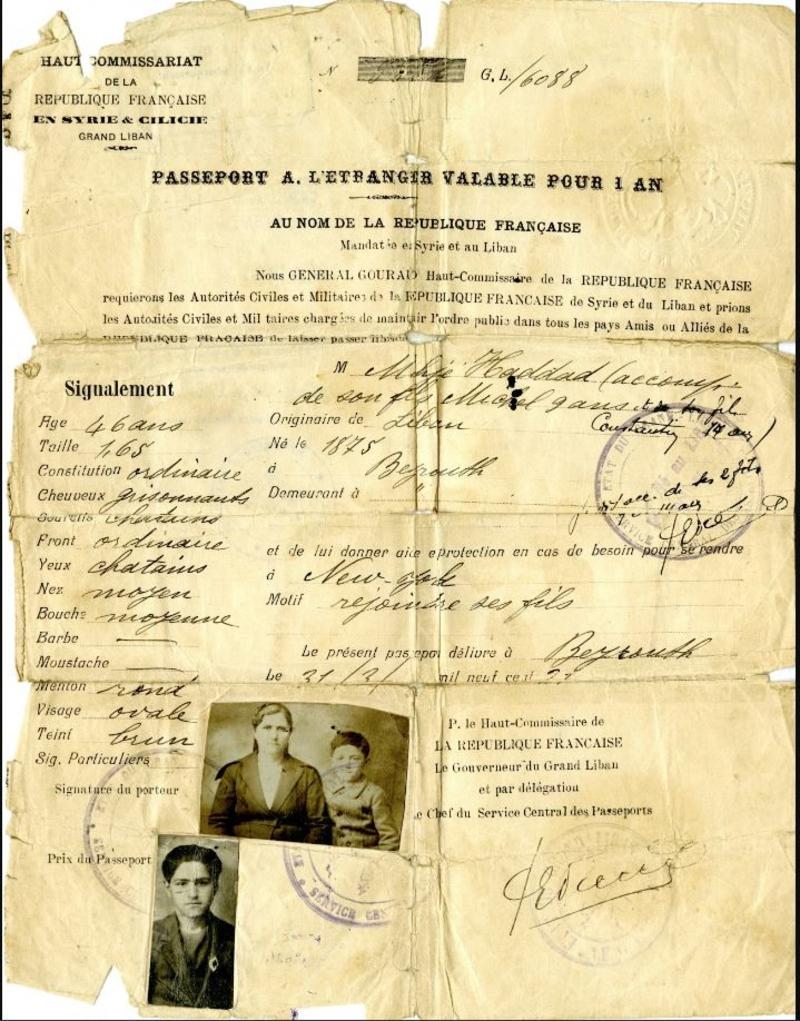 HAUT COMMISSARIAT
DE LA
REPUBLIQUE FRANÇAISE
EN SYRIE & CILICIE
GRAND LIBAN
N G. L./6088
PASSEPORT A. L'ETRANGER VALABLE POUR 1 AN
AU NOM DE LA REPUBLIQUE FRANÇAISE
Mandatée en Syrie et au Liban
Nous GENERAL GOURAUD Haut-Commissaire de la REPUBLIQUE FRANÇAISE
requierons les Autorités Civiles et Militaires de la REPUBLIQUE FRANCAISE de Syrie et du Liban et prions
les Autorités Civiles et Militaires chargées de maintair l'ordre public dans tous les pays Amis ou Alliés de la
REPUBLIQUE FRACAISE de laisser passer
M Haddad (accomp.
de son fils Michel 9 ans
Constantin 14 ans)
Siqualement
Age 46 ans
Taille 1,65
Constitution ordinaire
Cheuveux grisonnants
Sourcils chatains
Front ordinaire
Yeux chatains
Nez moyen
Bouche moyenne
Barbe —
Moustache —
Menton rond
Visage ovale
Teint brun
Sig. Particuliers
Signature du porteur
Prix du Passeport
Originaire de Liban
Né le 1875
à Beyrouth
Demeurant à "
et de lui donner aide e protection en cas de besoin pour se rendre
à New-york
Motif rejoindre ses fils
Le présent passeport délivré à Beyrouth
Le 21/2/ mil neuf cent
P. le Haut-Commissaire de
LA REPUBLIQUE FRANCAISE
Le Gouverneur du Grand Liban
et par délégation
Le Chef du Service Central des Passeports
SERVICE CEN